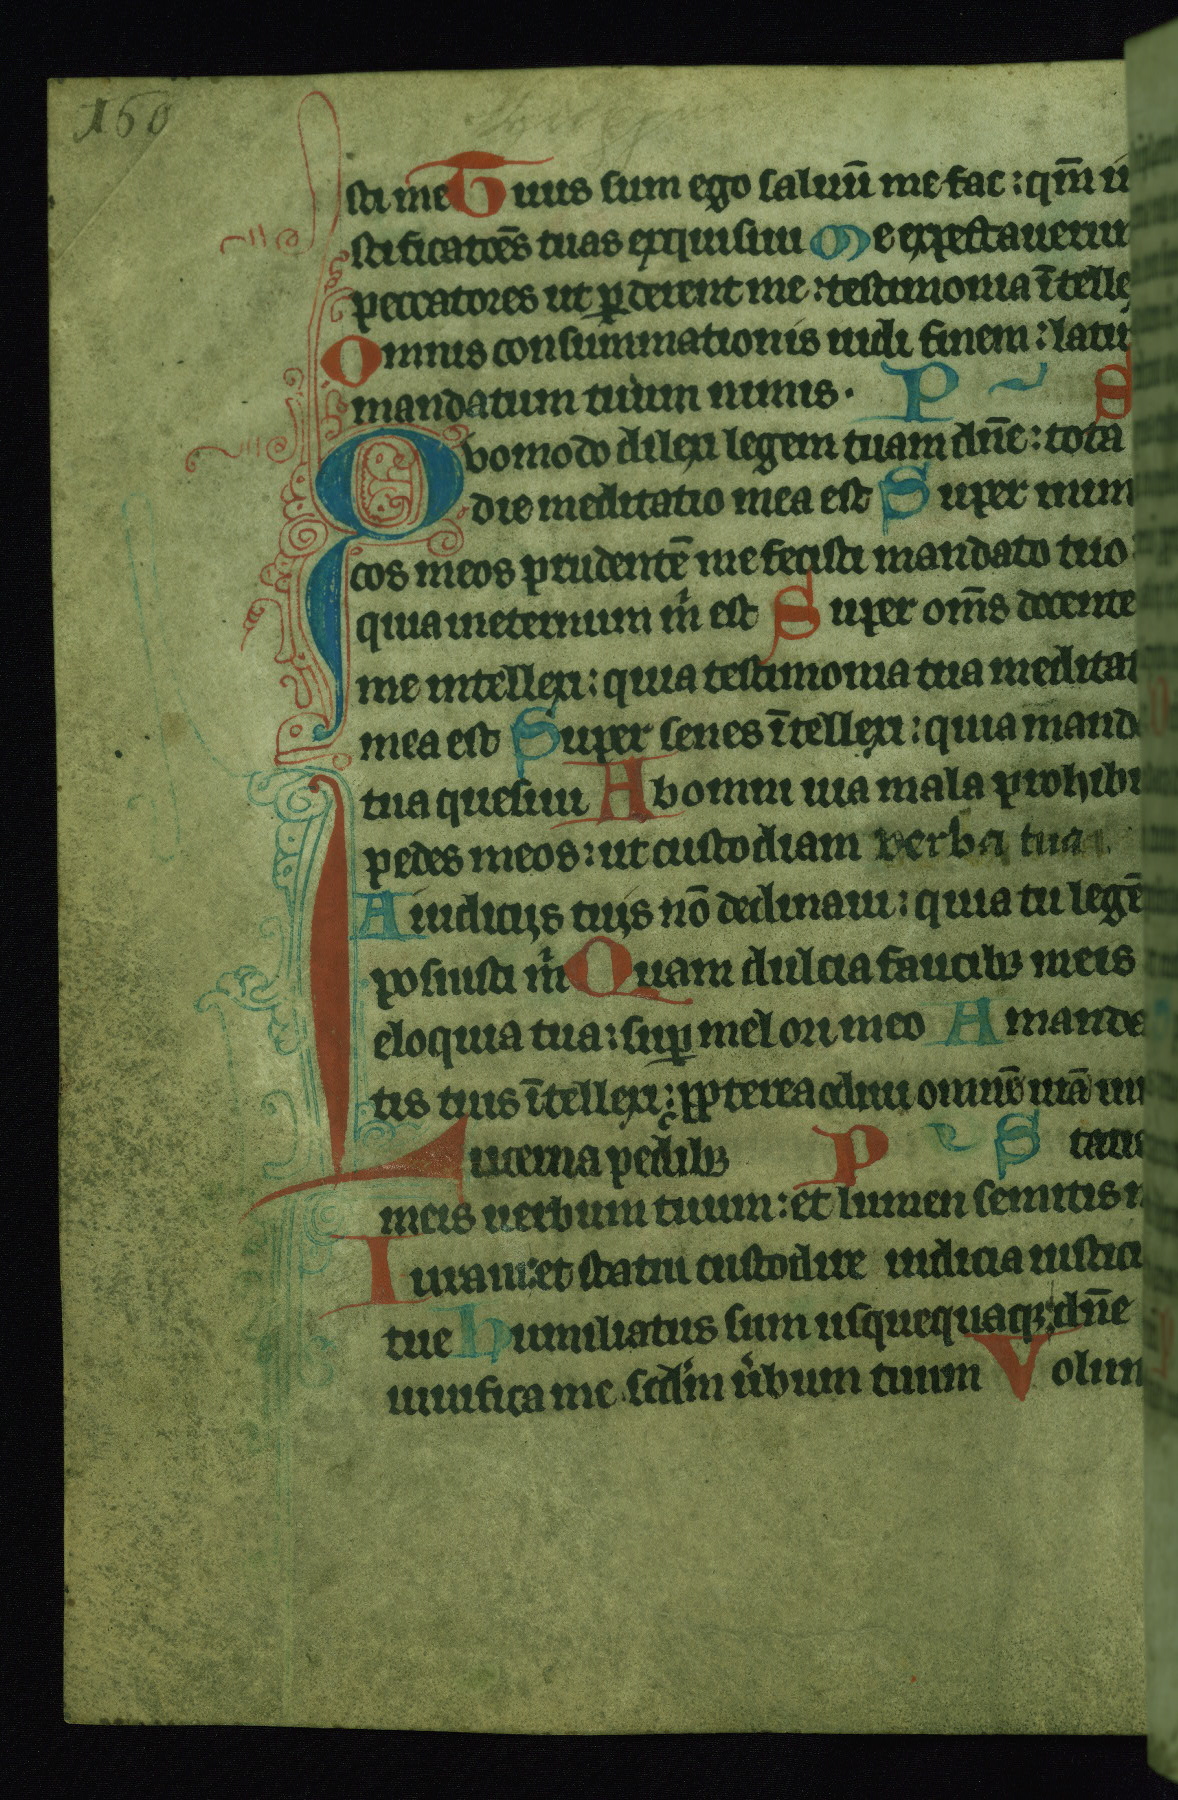 160
sti me Tuus sum ego saluū me fac : qm̄ iu
stificatōēs tuas exquisiui Me expectauerūt
peccatores ut ꝑderent me : testimonia ītelle
Omnis consummationis uidi finem : latū
mandatum tuum nimis . P S
Quomodo dilexi legem tuam dn̄e : tota
die meditatio mea est Super inim
cos meos prudentē me fecisti mandato tuo :
quia ineternum m̊ est Super om̄s docente
me intellexi : quia testimonia tua meditat
mea est Super senes ītellexi : quia manda
tua quesiui Ab omni uia mala prohibu
pedes meos : ut custodiam verba tua
A iudicijs tuis nō declinaui : quia tu legē
posuisti m̊ Quam dulcia faucibꝫ meis
eloquia tua : suꝑ mel ori meo A manda
tis tuis ītellexi : ꝓpterea odiui omnē uiā in
Lucerna pedibꝫ P S
meis uerbum tuum : et lumen semitis m
Iuraui : et statui custodire iudicia iustici
tue Humiliatus sum usquequaqꝫ dn̄e
uiuifica me scdm̄ u̇bum tuum Volun